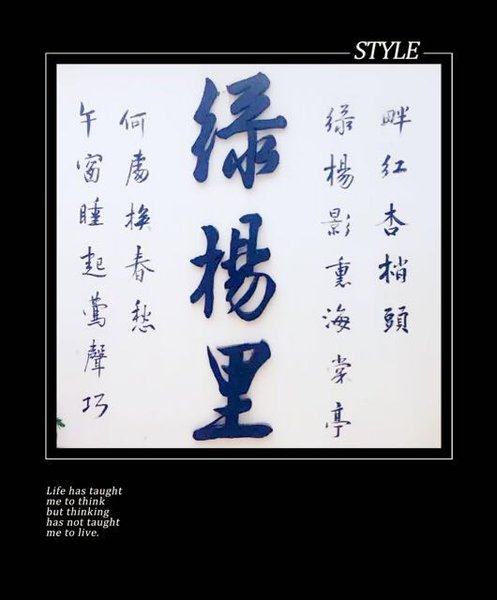 STYLE
午窗睡起鶯聲巧
何處換春愁
绿楊里
绿楊影裏海棠亭
畔紅杏梢頭
Life has taught
me to think
but thinking
has not taught
me to live.